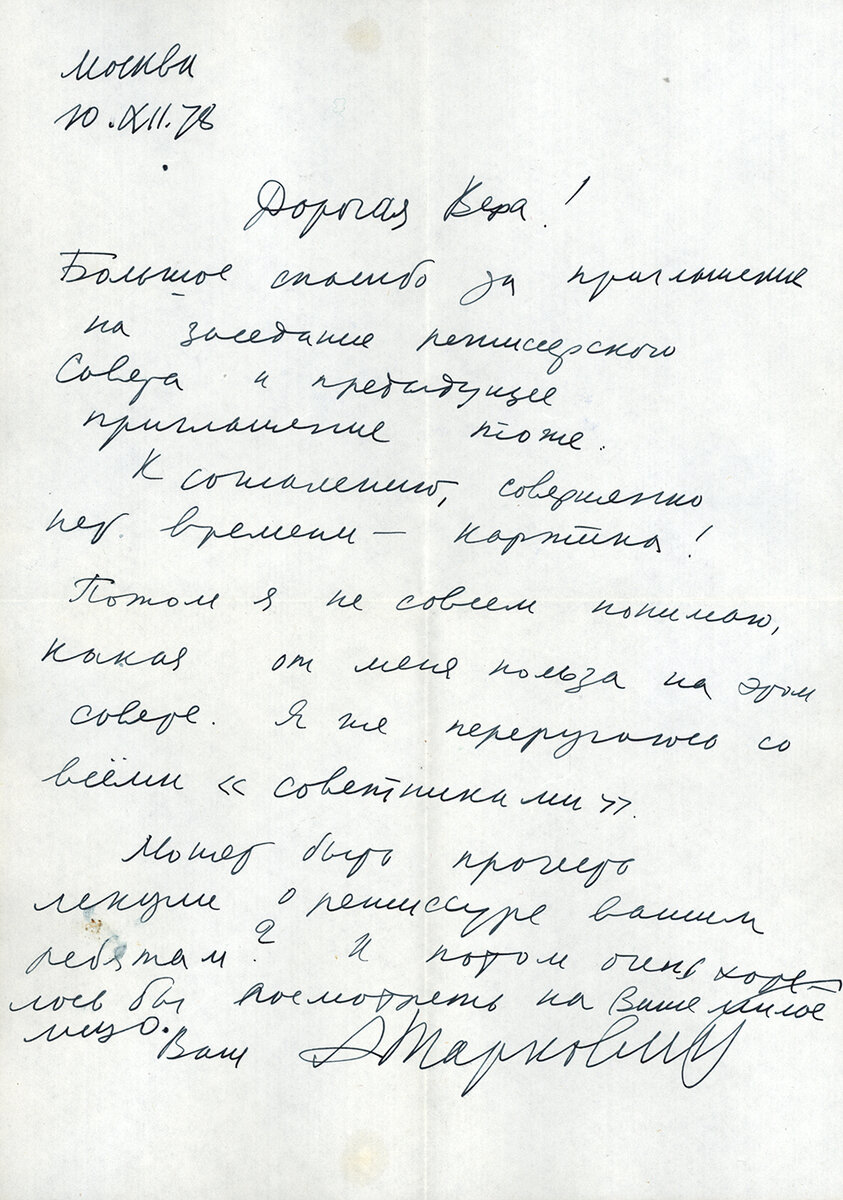 Москва
10.XII.78
Дорогая Вера!
Большое спасибо за приглашение
на заседание режиссерского
Совета и предыдущее
приглашение тоже.
К сожалению, совершенно
нет времени — картина!
Потом я не совсем понимаю,
какая от меня польза на этом
совете. Я же переругаюсь со
всеми « советниками ».
Может быть прочесть
лекции о режиссуре вашим
ребятам? И потом очень хоте-
лось бы посмотреть на Ваше милое
лицо.
Ваш А Тарковский